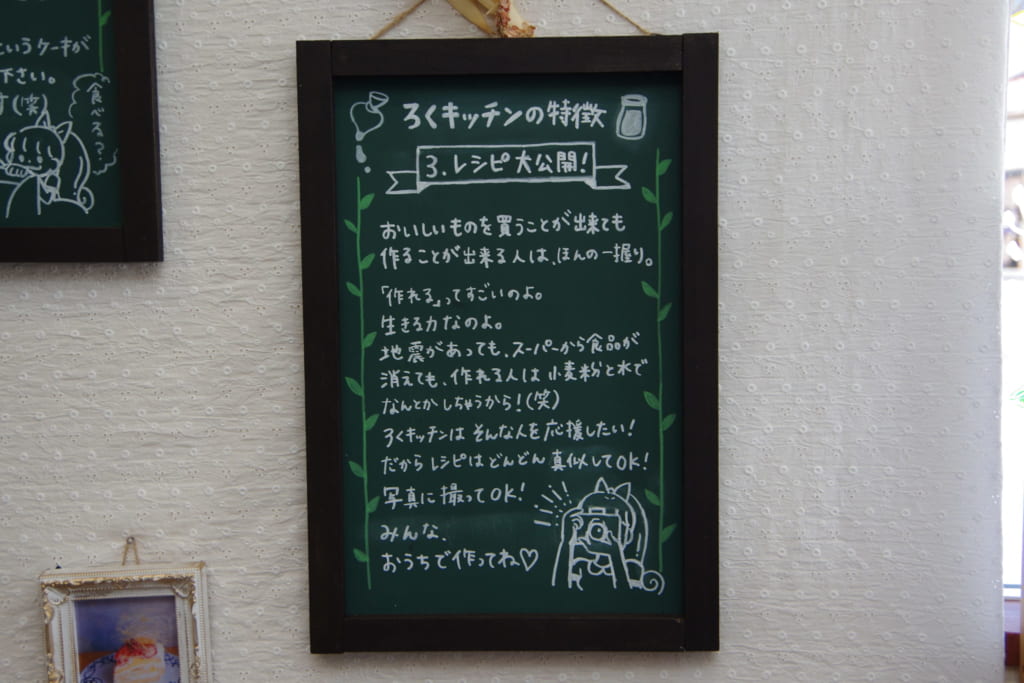 というケーキが
下さい。
す(笑)
食べる?
ろくキッチンの特徴
3.レシピ大公開!
おいしいものを買うことが出来ても
作ることが出来る人は、ほんの一握り。
「作れる」ってすごいのよ。
生きる力なのよ。
地震があっても、スーパーから食品が
消えても、作れる人は小麦粉と水で
なんとかしちゃうから!(笑)
ろくキッチンはそんな人を応援したい!
だからレシピはどんどん真似してOK!
写真に撮ってOK!
みんな、
おうちで作ってね♡